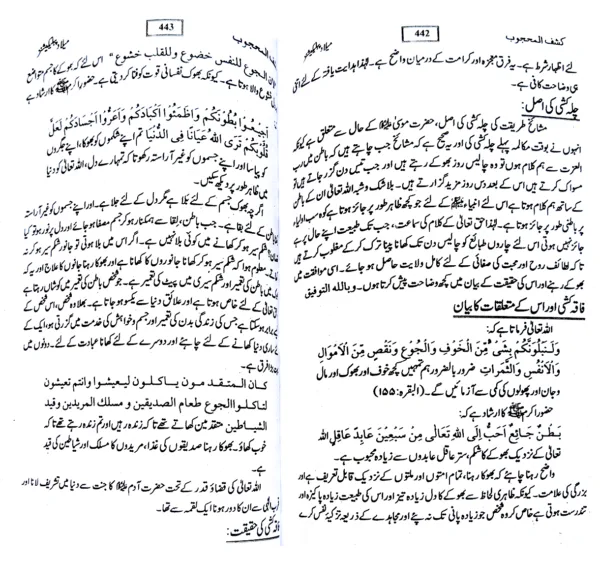 442
کشف المحجوب
لئے اظہار شرط ہے۔ یہ فرق معجزہ اور کرامت کے درمیان واضح ہے۔ لہٰذا ہدایت یافتہ کے لئے اتنی
ہی وضاحت کافی ہے۔
چلہ کشی کی اصل:
مشائخ طریقت کی چلہ کشی کی اصل، حضرت موسیٰ علیہ السلام کے حال سے متعلق ہے کیونکہ
انہوں نے بوقت مکالمہ پہلے چلہ کشی کی اور یہ صحیح ہے کہ مشائخ جب چاہتے ہیں کہ باطن میں رب
العزت سے ہم کلام ہوں تو وہ چالیس روز بھوکے رہتے ہیں اور جب تیس دن گزر جاتے ہیں تو
مسواک کرتے ہیں اس کے بعد دس روز مزید گزارتے ہیں۔ بلا شک و شبہ اللہ تعالیٰ ان کے باطن
کے ساتھ ہم کلام ہوتا ہے اس لئے انبیاء کے لئے جو کچھ ظاہر طور پر جائز ہوتا ہے وہ سب اولیاء
پر باطنی طور پر جائز ہوتا ہے۔ لہٰذا حق تعالیٰ کے کلام کی سماعت، جب تک طبیعت اپنے حال پر ہے
جائز نہیں ہوتی اس لئے چاروں طبائع کا چالیس دن تک کھانا پینا ترک کر کے مغلوب کرتے ہیں
تاکہ لطائف روح اور محبت کی صفائی کے لئے کامل ولایت حاصل ہو جائے۔ اسی موافقت میں
بھوکے رہنے اور اس کی حقیقت کے بیان میں کچھ وضاحت پیش کرتا ہوں۔ وباللہ التوفیق
فاقہ کشی اور اس کے متعلقات کا بیان
اللہ تعالیٰ فرماتا ہے کہ:
وَلَنَبْلُوَنَّكُمْ بِشَيْءٍ مِّنَ الْخَوْفِ وَالْجُوْعِ وَنَقْصٍ مِّنَ الْاَمْوَالِ
وَالْاَنْفُسِ وَالثَّمَرَاتِ ضرور بالضرور ہم تمہیں کچھ خوف اور بھوک اور مال
و جان اور پھولوں کی کمی سے آزمائیں گے۔ (البقرہ: ۱۵۵)
حضور اکرم ﷺ کا ارشاد ہے کہ:
بَطْنٌ جَائِعٌ اَحَبُّ اِلَى اللّٰهِ تَعَالٰى مِنْ سَبْعِيْنَ عَابِدٍ عَاقِلٍ اللہ
تعالیٰ کے نزدیک بھوکے کا شکم، ستر عاقل عابدوں سے زیادہ محبوب ہے۔
واضح رہنا چاہئے کہ بھوکا رہنا، تمام امتوں اور ملتوں کے نزدیک قابل تعریف ہے اور
بزرگی کی علامت۔ کیونکہ ظاہری لحاظ سے بھوکے کا دل زیادہ تیز اور اس کی طبیعت زیادہ پاکیزہ اور
تندرست ہوتی ہے خاص کر وہ شخص جو زیادہ پانی تک نہ پئے اور مجاہدے کے ذریعہ تزکیۂ نفس کرے
443
المحجوب
الجوع للنفس خضوع وللقلب خشوع" اس لئے کہ بھوکے کا جسم متواضع
خشوع والا ہوتا ہے۔ کیونکہ بھوک نفسانی قوت کو فنا کر دیتی ہے۔ حضور اکرم ﷺ کا ارشاد ہے
اَجِيْعُوْا بُطُوْنَكُمْ وَاَظْمَئُوْا اَكْبَادَكُمْ وَاَعْرُوْا اَجْسَادَكُمْ لَعَلَّ
قُلُوْبَكُمْ تَرَى اللّٰهَ عِيَانًا فِى الدُّنْيَا تم اپنے شکموں کو بھوکا، اپنے جگروں
کو پیاسا اور اپنے جسموں کو غیر آراستہ رکھو تاکہ تمہارے دل، اللہ تعالیٰ کو دنیا
میں ظاہر طور پر دیکھ سکیں۔
اگرچہ بھوک جسم کے لئے بلا ہے مگر دل کے لئے جلا ہے۔ اور اپنے جسموں کو غیر آراستہ
جب باطن، بقا سے ہمکنار ہو کر جسم مصفا ہو جائے اور دل پرنور ہو تو کیا
شکم سیر ہو کر کھانے میں کوئی بلا نہیں ہے۔ اگر اس میں بلا ہوتی تو جانور شکم سیر ہو کر نہ
معلوم ہوا کہ شکم سیر ہو کر کھانا جانوروں کا کھانا ہے اور بھوکا رہنا جانوں کا علاج اور یہ کہ
میں باطن کی تعمیر اور شکم سیری میں پیٹ کی تعمیر ہے۔ جو شخص باطن کی تعمیر میں کوشاں رہتا ہے
تعالیٰ کے لئے خاص ہوتا ہے اور علائق دنیا سے یکسو ہو جاتا ہے۔ بھلا وہ شخص، اس شخص کے
برابر ہو سکتا ہے جس کی زندگی بدن کی تعمیر اور جسم و خواہش کی خدمت میں گزرتی ہو، ایک کے
ساری دنیا کھانے کے لئے چاہئے اور دوسرے کے لئے کھانا عبادت کے لئے۔ دونوں میں
فرق ہے۔
کان المتقدمون یاکلون لیعیشوا وانتم تعیشون
لتاکلوا الجوع طعام الصدیقین و مسلک المریدین وقید
الشیاطین متقدمین کھاتے تھے تاکہ زندہ رہیں اور تم زندہ رہتے تھے تاکہ
خوب کھاؤ۔ بھوکا رہنا صدیقوں کی غذا، مریدوں کا مسلک اور شیاطین کی قید
ہے۔
اللہ تعالیٰ کی قضا و قدر کے تحت حضرت آدم علیہ السلام کا جنت سے دنیا میں تشریف لانا اور
سے ان کا دور ہونا ایک لقمہ سے تھا۔
فاقہ کشی کی حقیقت: